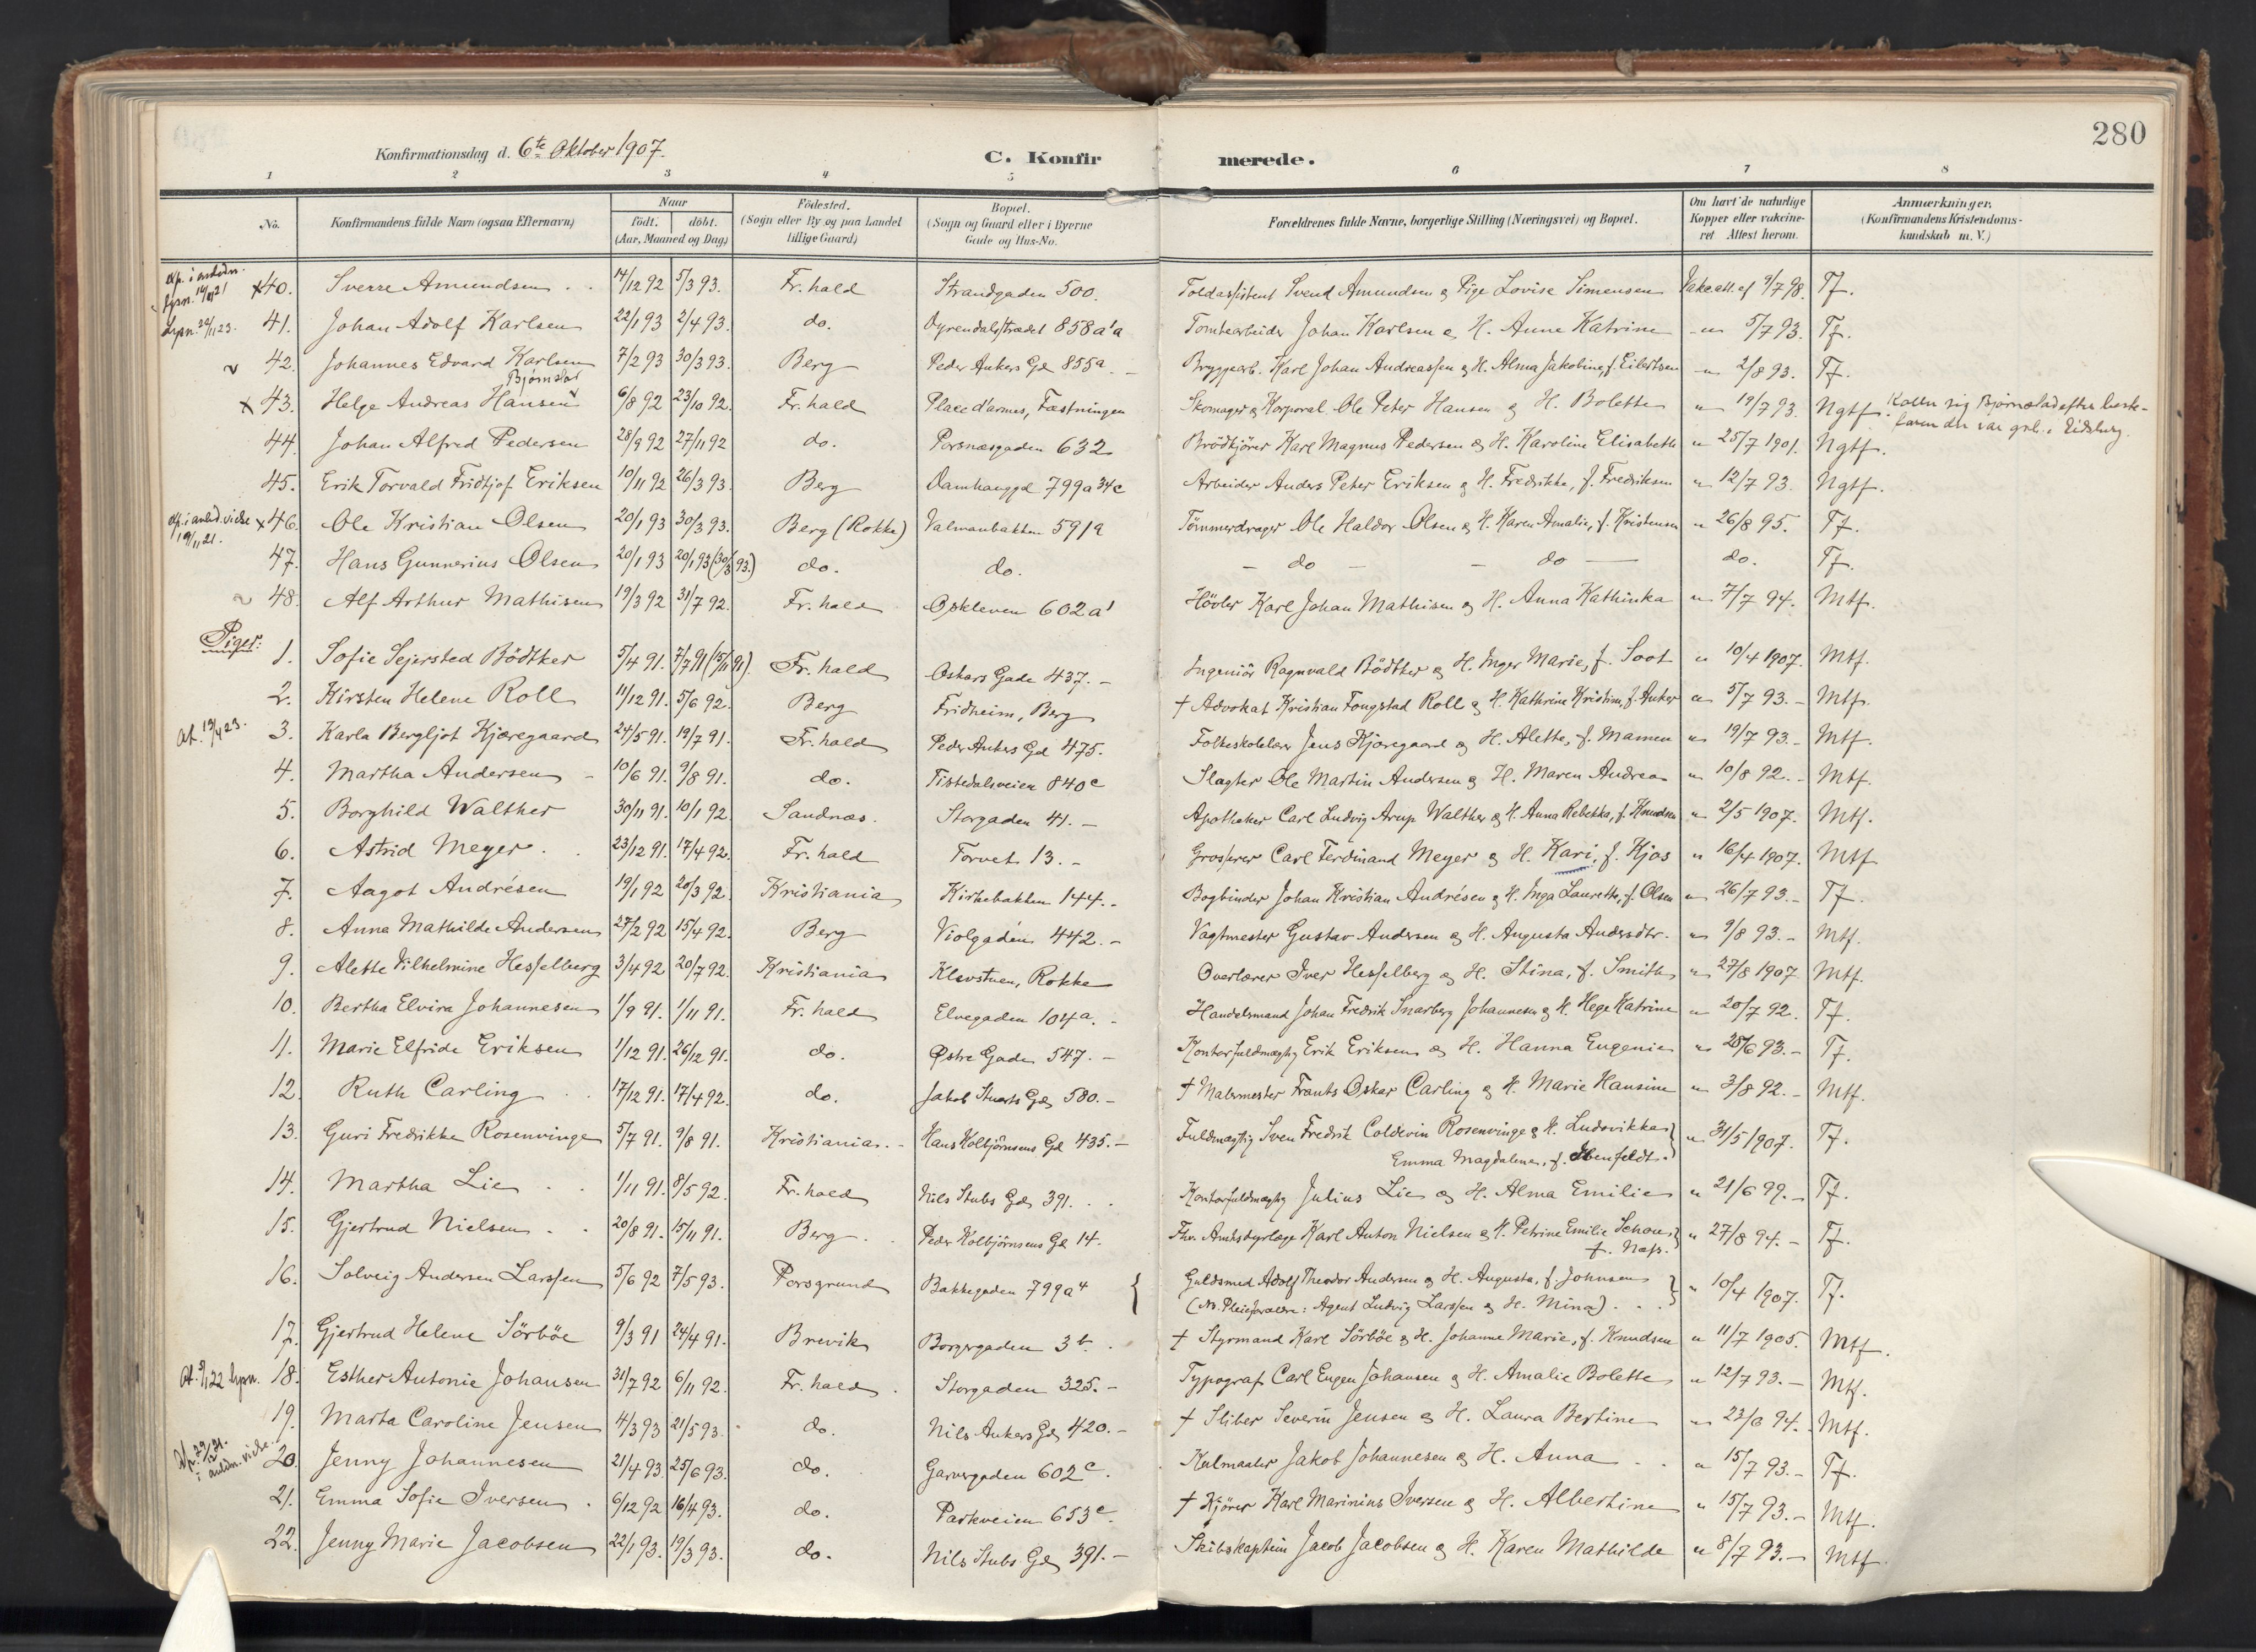 280
Konfirmationsdag d. 6te Oktober 1907.
C. Konfirmerede.
1 2 3 4 5 6 7 8
No. Konfirmandens fulde Navn (ogsaa Efternavn) Naar født. døbt. (Aar, Maaned og Dag) Fødested. (Sogn eller By og paa Landet tillige Gaard) Bopæl. (Sogn og Gaard eller i Byerne Gade og Hus-No. Forældrenes fulde Navne, borgerlige Stilling (Næringsvei) og Bopæl. Om havt de naturlige Kopper eller vakcineret Attest herom. Anmærkninger. (Konfirmandens Kristendomskundskab m. V.)
x 40. Sverre Amundsen 14/12 92 5/3 93. Fr.hald Strandgaden 500. Toldassistent Svend Amundsen & Pige Lovise Simensen Vakc.att. af 9/7 98. Tf.
41. Johan Adolf Karlsen 22/1 93 2/4 93. do. Dyrendalstrædet 858a'a Tomtearbeider Johan Karlsen & H. Anne Katrine " 5/7 93. Tf.
42. Johannes Edvard Karlsen 7/2 93 30/3 93. Berg Peder Ankers Gd 855a. Bryggearb. Karl Johan Andreassen & H. Alma Jakobine, f. Eilertsen " 2/8 93. Tf.
Bjørnstad
x 43. Helge Andreas Hansen 6/8 92 23/10 92. Fr.hald Place d'armes, Fæstningen Skomager & Korporal Ole Peter Hansen & H. Bolette " 19/7 93. Ngtf. Kaller sig Bjørnstad efter bestefaren der var grb. i Eidsberg.
44. Johan Alfred Pedersen 28/9 92 27/11 92 do. Porsnæsgaden 632 Brödkjører Karl Magnus Pedersen & H. Karoline Elisabeth " 25/7 1901. Ngtf.
45. Erik Torvald Fridtjof Eriksen 10/11 92 26/3 93. Berg Damhauggd 799a 34c Arbeider Anders Peter Eriksen & H. Fredrikke, f. Fredriksen " 12/7 93. Ngtf.
x 46. Ole Kristian Olsen 20/1 93 30/3 93. Berg (Rokke) Valmanbakken 591a Tømmerdrager Ole Haldor Olsen & H. Karen Amalie, f. Kristensen " 26/8 95. Tf.
47. Hans Gunnerius Olsen 20/1 93 20/1 93 (30/3 93.) do. do. do do do. Tf.
48. Alf Arthur Mathisen 19/3 92 31/7 92. Fr.hald Oskleven 602a' Høvler Karl Johan Mathisen & H. Anna Kathinka " 7/7 94. Mtf.
Piger:
1. Sofie Sejersted Bödtker 5/4 91. 7/7 91 (15/11 91). Fr.hald Oskars Gade 437. Ingeniör Ragnvald Bödtker & H. Inger Marie, f. Soot " 10/4 1907. Mtf.
2. Kirsten Helene Roll 11/12 91. 5/6 92. Berg Fridheim, Berg † Advokat Kristian Fougstad Roll & H. Kathrine Kristine, f. Anker " 5/7 93. Mtf.
3. Karla Bergljot Kjæregaard 24/5 91. 19/7 91. Fr.hald Peder Ankers Gd 475. Folkeskolelærer Jens Kjæregaard & H. Alette, f. Mamen " 19/7 93. Mtf.
4. Martha Andersen 10/6 91. 9/8 91. do. Tistedalsveien 840c Slagter Ole Martin Andersen & H. Maren Andrea " 10/8 92. Mtf.
5. Borghild Walther 30/11 91. 10/1 92. Sandnæs. Storgaden 41. Apotheker Carl Ludvig Arup Walther & H. Anna Rebekka, f. Knudsen " 2/5 1907. Mtf.
6. Astrid Meyer 23/12 91. 17/4 92. Fr.hald Torvet 13. Grosserer Carl Ferdinand Meyer & H. Kari, f. Kjos " 16/4 1907. Mtf
7. Aagot Andrésen 19/1 92 20/3 92. Kristiania Kirkebakken 144. Bogbinder Johan Kristian Andrésen & H. Inga Laurette, f. Olsen " 26/7 93. Tf
8. Anna Mathilde Andersen 27/2 92 15/4 92. Berg Violgaden 442. Vagtmester Gustav Andersen & H. Augusta Andersdtr. " 9/8 93. Mtf.
9. Alette Vilhelmine Hesselberg 3/4 92 20/7 92. Kristiania Klevstuen, Rokke Overlærer Iver Hesselberg & H. Stina, f. Smith " 27/8 1907 Mtf.
10. Bertha Elvira Johannesen 1/9 91. 1/11 91. Fr.hald Elvegaden 104a. Handelsmand Johan Fredrik Snarberg Johannesen & H. Hege Katrine " 20/7 92. Tf.
11. Marie Elfride Eriksen 1/12 91. 26/12 91. do. Østre Gade 547. Kontorfuldmægtig Erik Eriksen & H. Hanna Eugenie " 28/6 93. Tf.
12. Ruth Carling 17/12 91. 17/4 92. do. Jakob Stuarts Gd 580. † Malermester Frants Oskar Carling & H. Marie Hansine " 3/8 92. Mtf.
13. Guri Fredrikke Rosenvinge 5/7 91. 9/8 91. Kristiania. Hans Kolbjørnsens Gd 435. Fuldmægtig Sven Fredrik Coldevin Rosenvinge & H. Ludovikka " 31/5 1907. Tf.
Emma Magdalene, f. Ebenfeldt.
14. Martha Lie 1/11 91. 8/5 92. Fr.hald Nils Stubs Gd 391. Kontorfuldmægtig Julius Lie & H. Alma Emilie " 21/6 99. Tf.
15. Gjertrud Nielsen 20/8 91. 15/11 91. Berg Peder Kolbjørnsens Gd 14. Fhv. Amtsdyrlæge Karl Anton Nielsen & H. Petrine Emilie Schou, " 27/8 94. Tf.
f. Næss.
16. Solveig Andersen Larssen 5/6 92 7/5 93. Porsgrund Bakkegaden 799a4 Guldsmed Adolf Theodor Andersen & H. Augusta, f. Johnsen " 10/4 1907. Tf.
(No. Pleieforældre: Agent Ludvig Larssen & H. Mina)
17. Gjertrud Helene Sörböe 9/3 91 24/4 91. Brevik Borgergaden 3b. † Styrmand Karl Sörböe & H. Johanne Marie, f. Knudsen " 11/7 1905. Mtf.
18. Esther Antonie Johansen 31/7 92 6/11 92. Fr.hald Storgaden 325. Typograf Carl Eugen Johansen & H. Amalie Bolette " 12/7 93. Mtf.
19. Marta Caroline Jensen 4/3 93 21/5 93. do. Nils Ankers Gd 420. † Sliber Severin Jensen & H. Laura Bertine " 23/6 94. Mtf.
20. Jenny Johannesen 21/4 93. 25/6 93. do. Garvergaden 602c. Kulmaaler Jakob Johannesen & H. Anna " 15/7 93. Tf.
21. Emma Sofie Iversen 6/12 92 16/4 93. do. Parkveien 653c. † Kjører Karl Marinius Iversen & H. Albertine " 15/7 93. Mtf.
22. Jenny Marie Jacobsen 22/1 93. 19/3 93. do. Nils Stubs Gd 391. Skibskaptein Jacob Jacobsen & H. Karen Mathilde " 8/7 93. Mtf